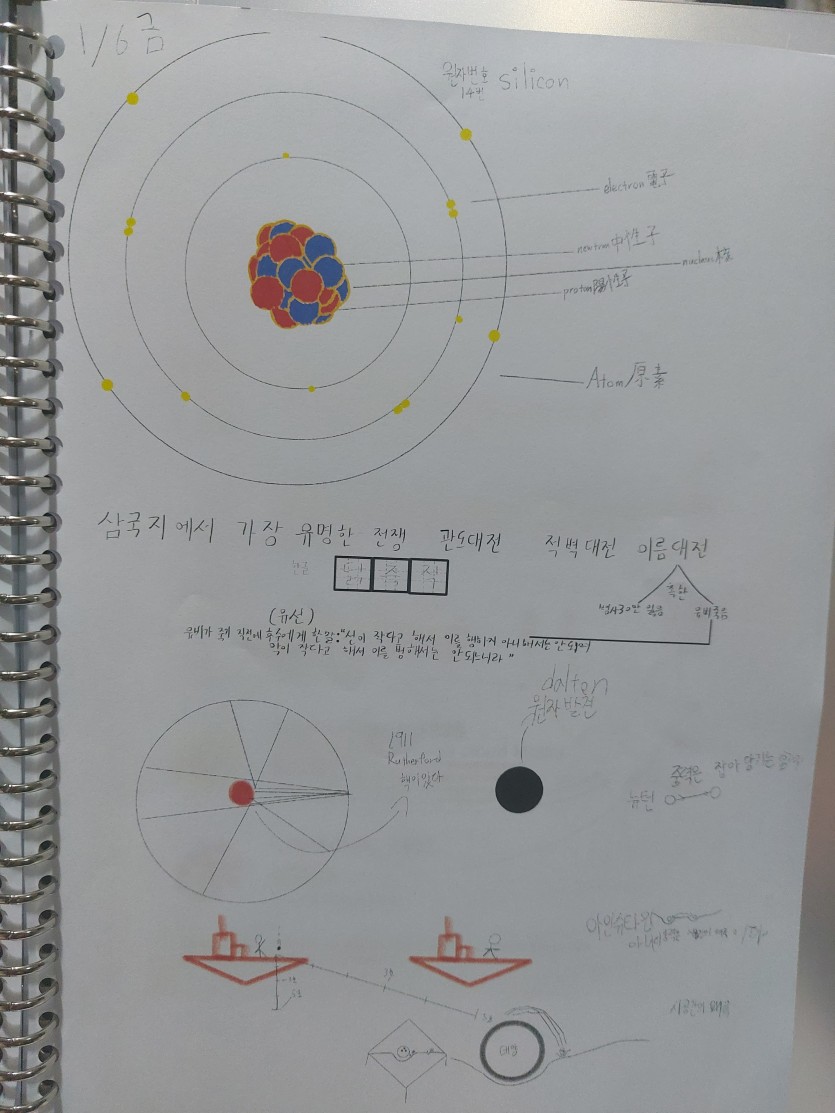 1/6 금
원자번호 silicon
14번
electron 電子
neutron 中性子
nucleus 核
proton 陽性子
Atom 原素
삼국지에서 가장 유명한 전쟁 관도대전 적벽대전 이릉대전
한글
촉한
유비죽음
(유선)
유비가 죽기 직전에 후주에게 한말:"선이 작다고 해서 이를 행하지 아니해서는 안되며
악이 작다고 해서 이를 행해서는 안되느니라"
dalton
원자 발견
1911
Rutherford
핵이있다
중력은 잡아 당기는
뉴턴
아인슈타인
시공간의 왜곡
태양